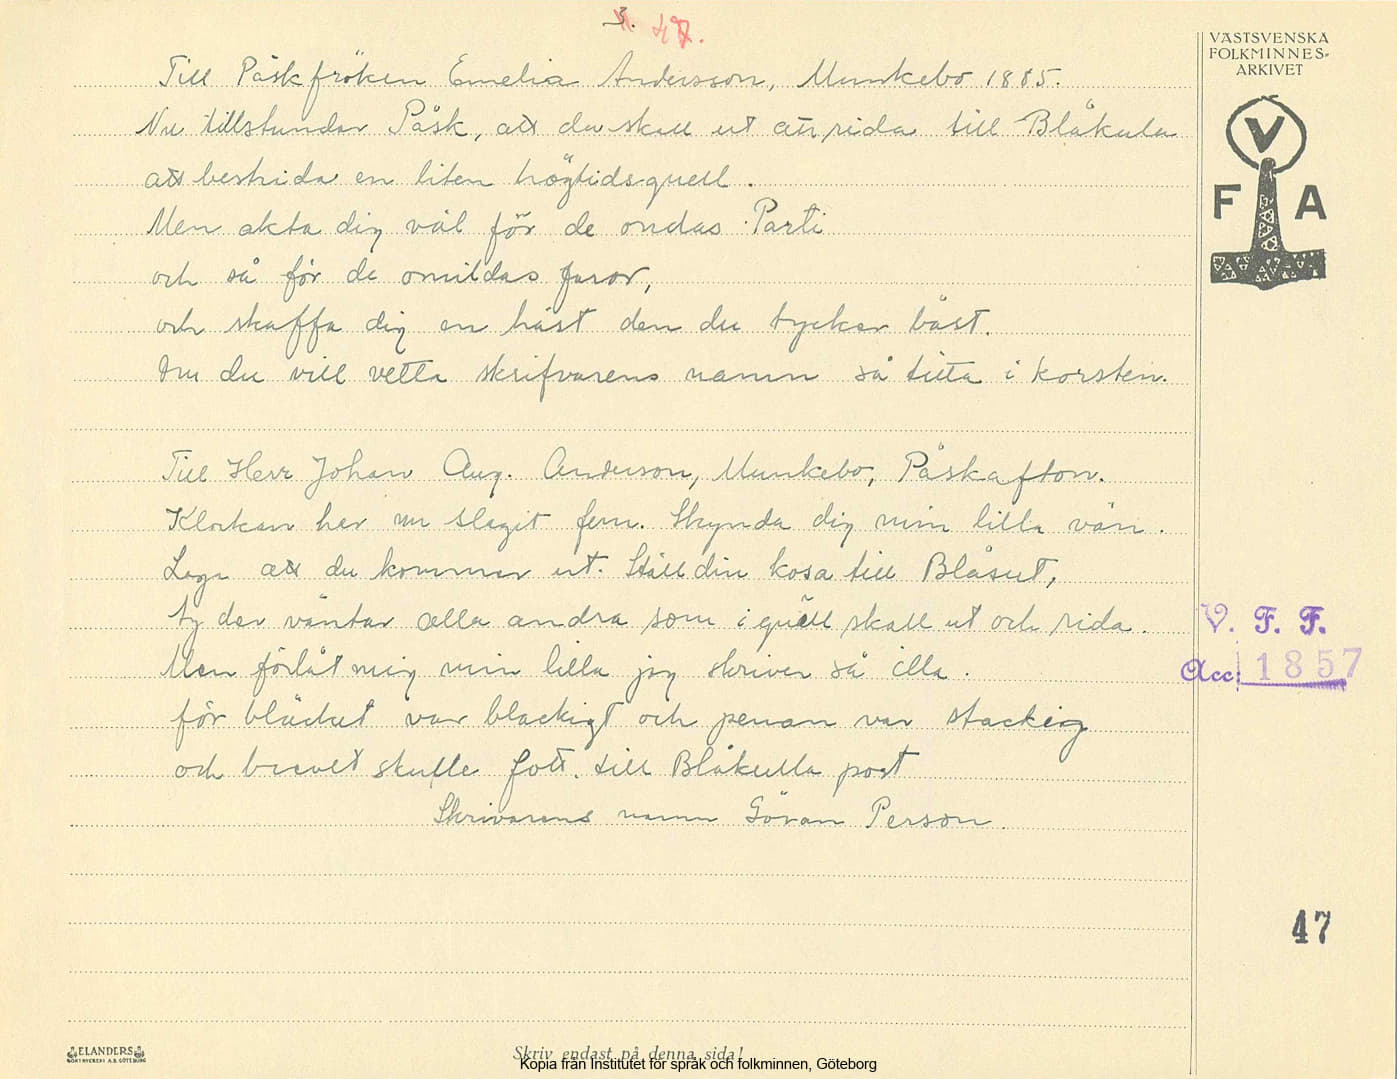 3.
47.
VÄSTSVENSKA
FOLKMINNES-
ARKIVET
V
F A
Till Påskfröken Emelia Andersson, Munkebo 1885.
Nu tillstundar Påsk, att du skall ut att rida till Blåkula
att beskrida en liten högtidsquell.
Men akta dig väl för de ondas Parti
och så för de omildas faror,
och skaffa dig en häst den du tycker bäst.
Om du vill vetta skrifvarens namn så titta i korsten.
Till Herr Johan Aug. Anderson, Munkebo, Påskafton.
Klockan har nu slagit fem. Skynda dig min lilla vän.
Laga att du kommer ut. Ställ din kosa till Blåsut,
ty der väntar alla andra som i quäll skall ut och rida.
Men förlåt mig min lilla jag skriver så illa.
för bläcket var blackigt och penan var stackig
och brevet skulle fort till Blåkulla post
Skrivarens namn Göran Person.
V. F. F.
Acc. 1857
47
ELANDERS
BOKTRYCKERI A.B. GÖTEBORG
Skriv endast på denna sida!
Kopia från Institutet för språk och folkminnen, Göteborg